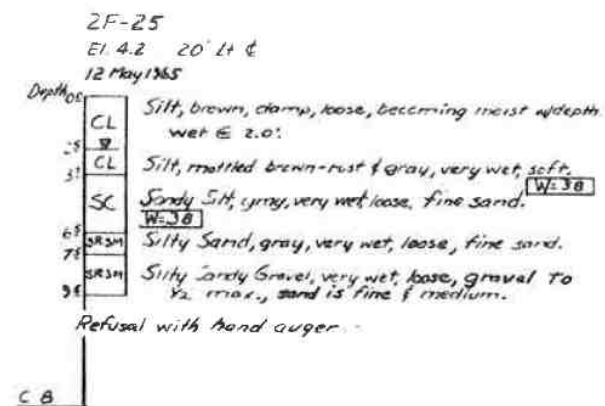 2F-25
El. 4.2 20' Lt ₵
12 May 1965
Depth
CL Silt, brown, damp, loose, becoming moist w/depth
wet @ 2.0'.
CL Silt, mottled brown-rust & gray, very wet, soft.
W=38
SC Sandy Silt, gray, very wet, loose, fine sand.
W=38
SRSM Silty Sand, gray, very wet, loose, fine sand.
SRSM Silty Sandy Gravel, very wet, loose, gravel to
½ max., sand is fine & medium.
Refusal with hand auger
C B